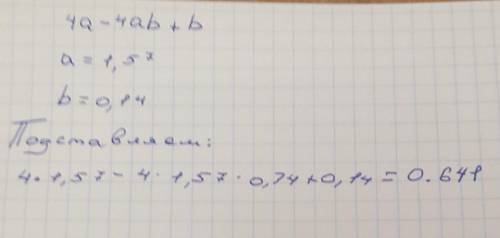 4a-4ab+b
a=1,57
b=0,14
Подставляем:
4·1,57-4·1,57·0,74+0,14=0.641